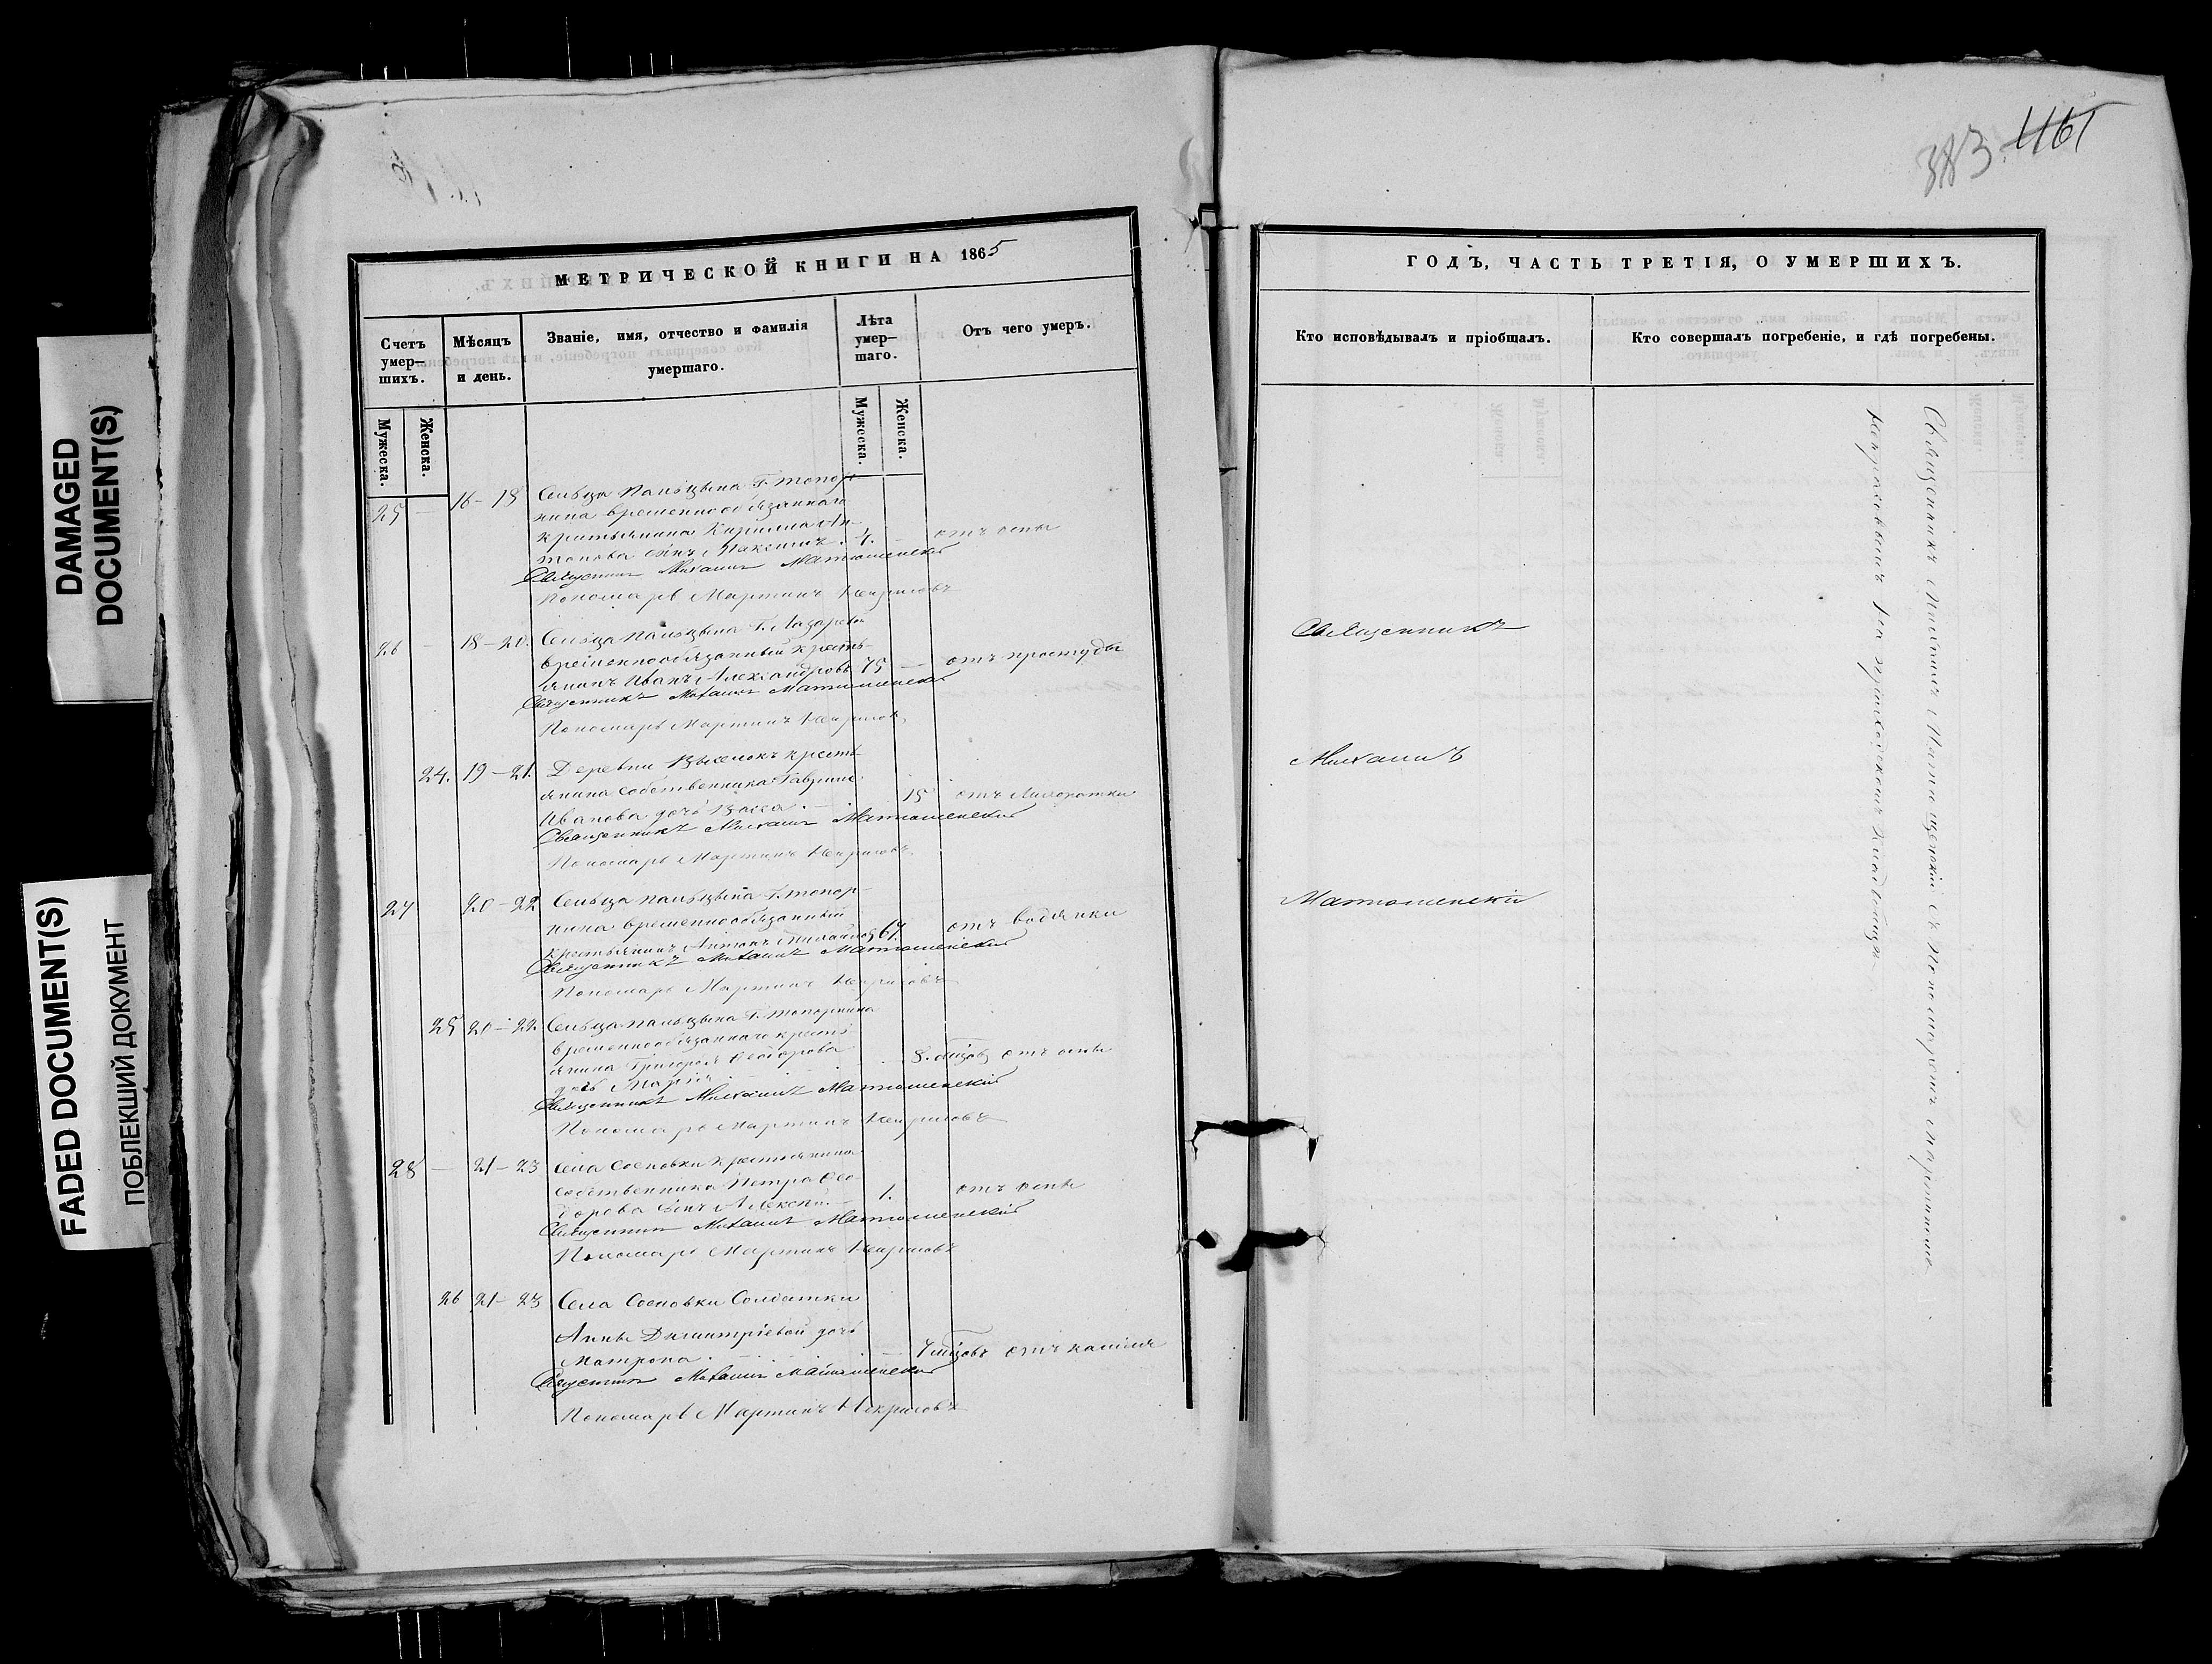 DAMAGED
DOCUMENT(S)
FADED DOCUMENT(S)
ПОБЛЕКШИЙ ДОКУМЕНТ
МЕТРИЧЕСКОЙ КНИГИ НА 1865
Счетъ умер—шихъ.
Мѣсяцъ и день.
Званіе, имя, отчество и фамилія умершаго.
Лѣта умер—шаго.
Отъ чего умеръ.
Мужеска.
Женска.
Мужеска.
Женска.
25 — 16 – 18 Сельца Пальцына Г. Топор-
нина временнообязаннаго
крестьянина Кирилла Ан-
тонова сынъ Максимъ. 4. — отъ оспы
Священникъ Михаилъ Матюшенскій
Пономарь Мартинъ Некрасовъ
26 — 18 – 20. Сельца Пальцына Г. Лазарева
временнообязанный кресть-
янинъ Иванъ Александровъ 75 — отъ простуды
Священникъ Михаилъ Матюшенскій
Пономарь Мартинъ Некрасовъ
24. 19 – 21. Деревни кресть-
янина собственника Гаврила
Иванова дочь Васса. — 15 отъ лихоратки
Священникъ Михаилъ Матюшенскій
Пономарь Мартинъ Некрасовъ
27 20 – 22 Сельца Пальцына Г. Топор-
нина временнообязанный
крестьянинъ Антонъ Михайловъ 67. отъ водянки
Священникъ Михаилъ Матюшенскій
Пономарь Мартинъ Некрасовъ
25 20 – 22 Сельца Пальцына Г. Топорнина
временнообязаннаго кресть-
янина Григорья Ѳеодорова
дочь Марія 8. мѣсцовъ отъ оспы
Священникъ Михаилъ Матюшенскій
Пономарь Мартинъ Некрасовъ
28 — 21 – 23 Села Сосновки крестьянина
собственника Петра Ѳео-
дорова сынъ Алексѣй. — 1. отъ оспы
Священникъ Михаилъ Матюшенскій
Пономарь Мартинъ Некрасовъ
26 21 – 23 Села Сосновки Солдатки
Анны Димитріевой дочь
Матрона. — мѣсцовъ отъ кашля
Священникъ Михаилъ Матюшенскій
Пономарь Мартинъ Некрасовъ
383. 461
ГОДЪ, ЧАСТЬ ТРЕТІЯ, О УМЕРШИХЪ.
Кто исповѣдывалъ и пріобщалъ.
Кто совершалъ погребеніе, и гдѣ погребены.
Священникъ
Михаилъ
Матюшенскій
Священникъ Михаилъ Матюшенскій съ Пономаремъ Мартиномъ
Некрасовымъ на приходскомъ кладбищѣ